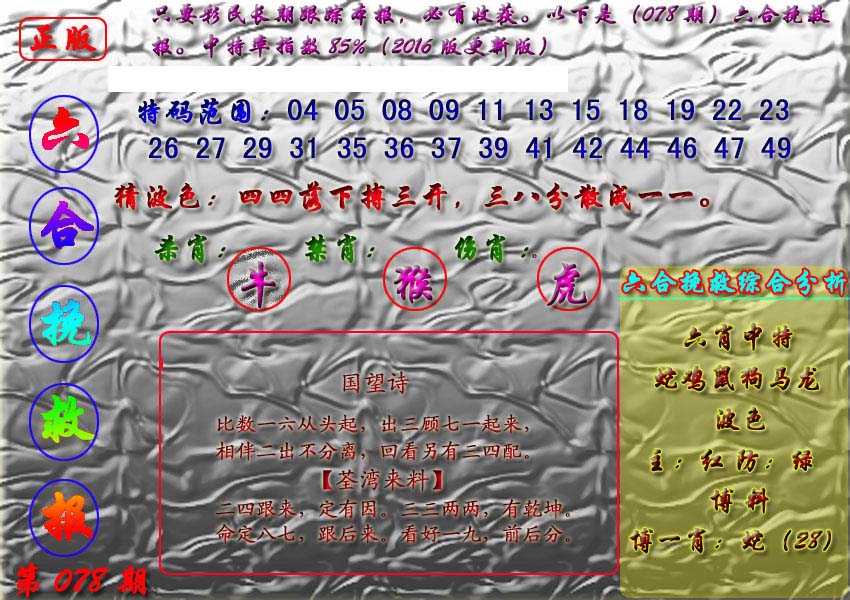 正版
只要彩民长期跟踪本报，必有收获。以下是（078期）六合挽救
报。中特率指数85%（2016版更新版）
六
合
挽
救
报
第078期
特码范围：04 05 08 09 11 13 15 18 19 22 23
26 27 29 31 35 36 37 39 41 42 44 46 47 49
猜波色：四四落下搏三开，三八分散成一一。
杀肖：牛 禁肖：猴 伤肖：虎
国望诗
比数一六从头起，出三顾七一起来，
相伴二出不分离，回看另有三四配。
【荃湾来料】
二四跟来，定有因。三三两两，有乾坤。
命定八七，跟后来。看好一九，前后分。
六合挽救综合分析
六肖中特
蛇鸡鼠狗马龙
波色
主：红防：绿
博料
博一肖：蛇（28）